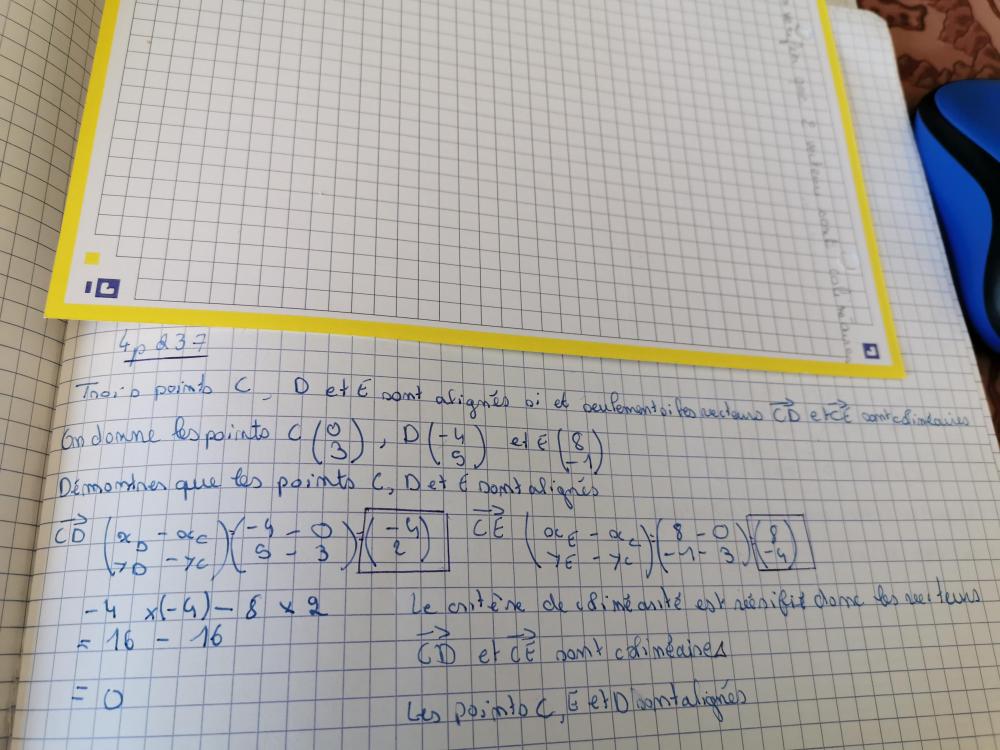 4p 237
Trois points C, D et E sont alignés si et seulement si les vecteurs CD et CE sont colinéaires
On donne les points C (0 3), D (-4 5) et E (8 -1)
Démontrer que les points C, D et E sont alignés
CD (xD - xC yD - yC) = (-4 - 0 5 - 3) = (-4 2) CE (xE - xC yE - yC) = (8 - 0 -1 - 3) = (8 -4)
-4 x (-4) - 8 x 2 Le critère de colinéarité est vérifié donc les vecteurs
= 16 - 16 CD et CE sont colinéaires
= 0 Les points C, E et D sont alignés